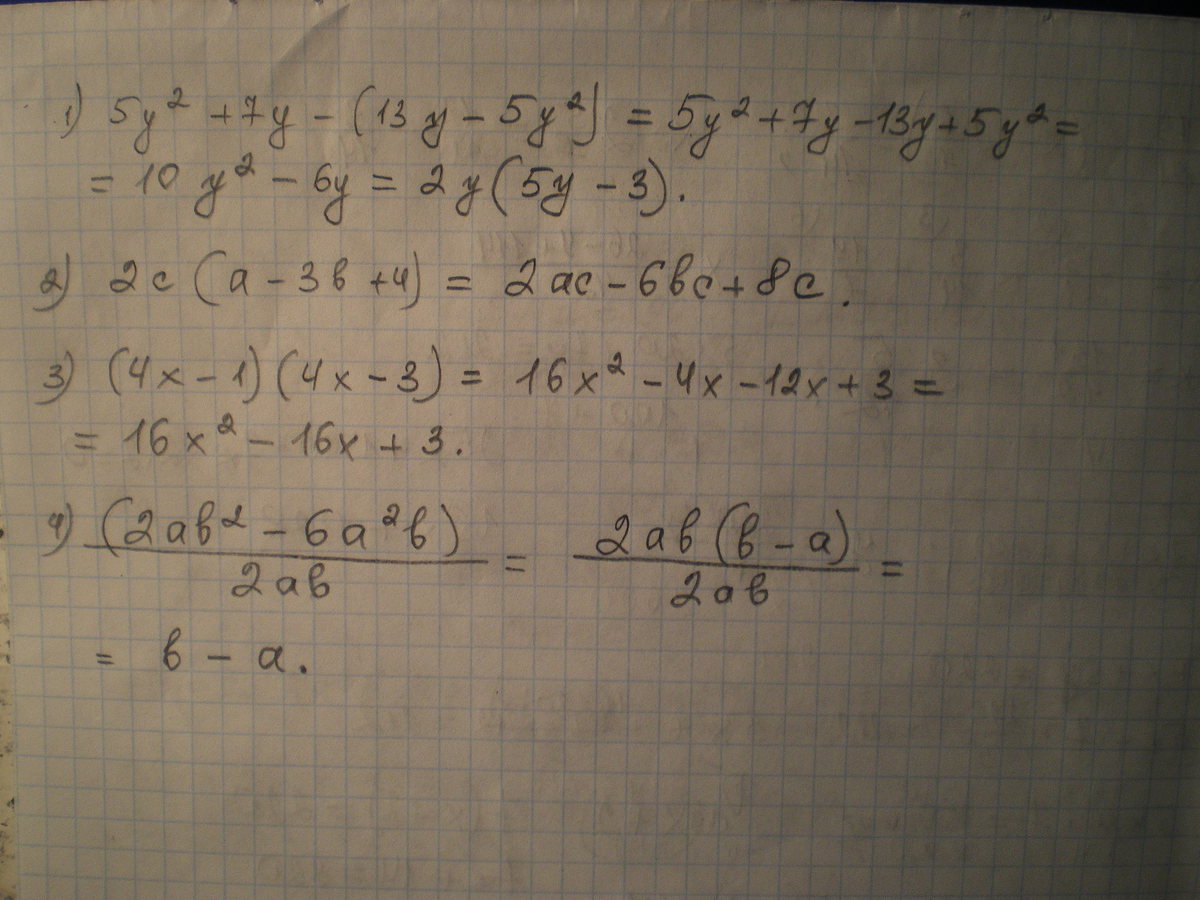 1) 5y² + 7y - (13y - 5y²) = 5y² + 7y - 13y + 5y² =
= 10y² - 6y = 2y(5y - 3).
2) 2c(a - 3в + 4) = 2ac - 6вc + 8c.
3) (4x - 1)(4x - 3) = 16x² - 4x - 12x + 3 =
= 16x² - 16x + 3.
4) (2aв² - 6a²в) / 2aв = 2aв(в - a) / 2aв =
= в - a.